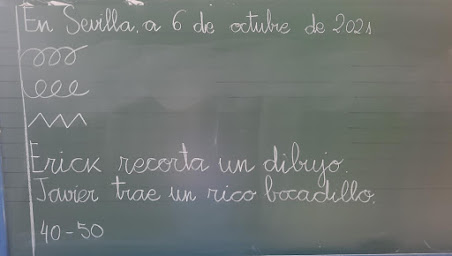 En Sevilla, a 6 de octubre de 2021
Erick recorta un dibujo.
Javier trae un rico bocadillo.
40-50